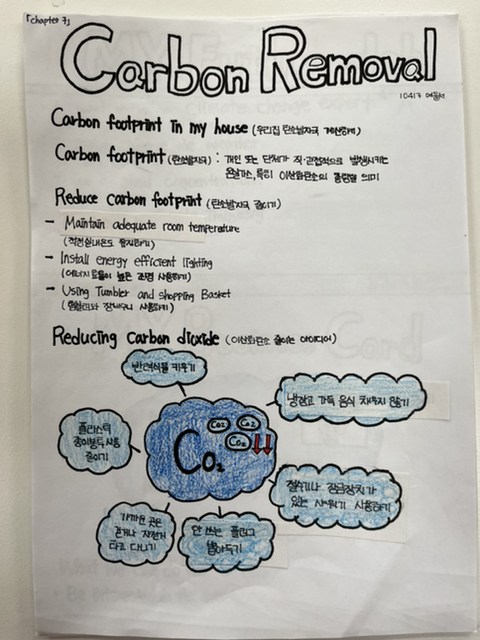 「chapter 7」
Carbon Removal
Carbon footprint in my house (우리집 탄소발자국 계산하기)
Carbon footprint (탄소발자국) : 개인 또는 단체가 직·간접적으로 발생시키는
온실가스, 특히 이산화탄소의 총량을 의미
Reduce carbon footprint (탄소발자국 줄이기)
- Maintain adequate room temperature
(적정실내온도 유지하기)
- Install energy efficient lighting
(에너지효율이 높은 조명 사용하기)
- Using Tumbler and shopping Basket
(텀블러와 장바구니 사용하기)
Reducing Carbon dioxide (이산화탄소 줄이는 아이디어)
반려식물 키우기
냉장고 가득 음식 채우지 않기
플라스틱
종이봉투 사용
줄이기
Co₂ Co₂
Co₂
Co₂
절수기나 잠금장치가
있는 샤워기 사용하기
가까운 곳은
걷거나 자전거
타고 다니기
안 쓰는 플러그
뽑아두기